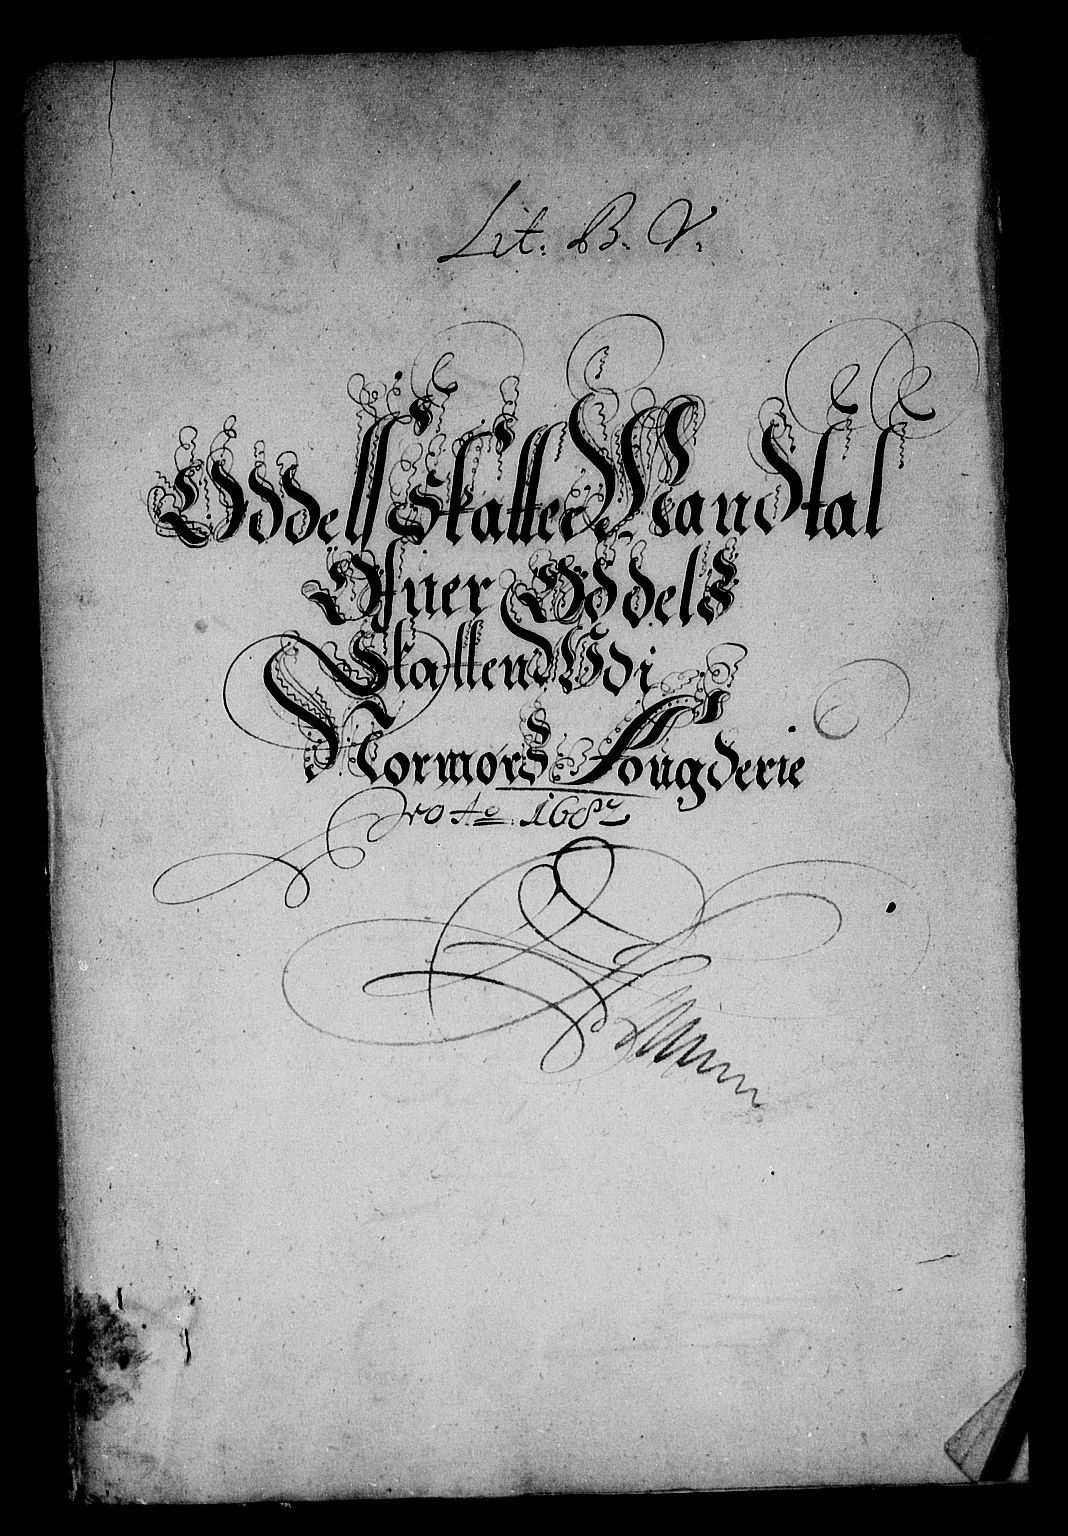 Lit: B. V:
Oddels Skatte Mandtal
Ofuer Oddels
Skatten Udi
Normörs Fougderie
Pro Ao: 168